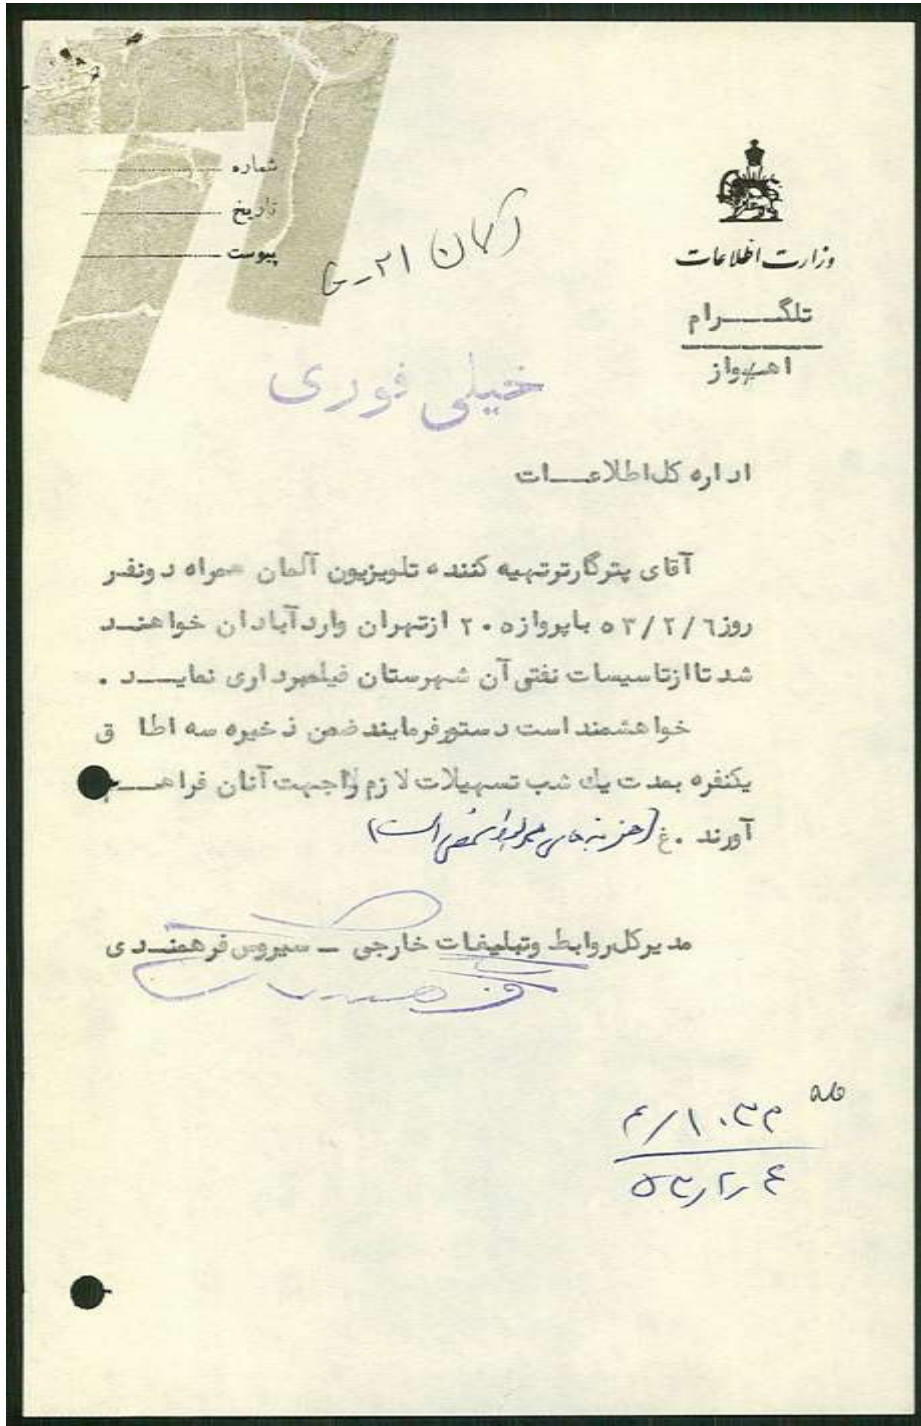 شماره
تاریخ
پیوست
وزارت اطلاعات
آلمان ۲۱-
تلگـــرام
اهواز
خیلی فوری
اداره کل اطلاعـــات
آقای پترگارتر تهیه کننده تلویزیون آلمان همراه دونفر
روز ۵۳/۲/۶ با پروازه ۲۰ از تهران وارد آبادان خواهنـد
شد تا از تاسیسات نفتی آن شهرستان فیلمبرداری نمایـــد .
خواهشمند است دستور فرمایند ضمن ذخیره سه اطا ق
یکنفره بمدت یک شب تسهیلات لازم را جهت آنان فراهــم
آورند .غ (هزینه های بعهده است)
مدیر کل روابط و تبلیغات خارجی – سیروس فرهمنـدی
۵۳/۲/۴